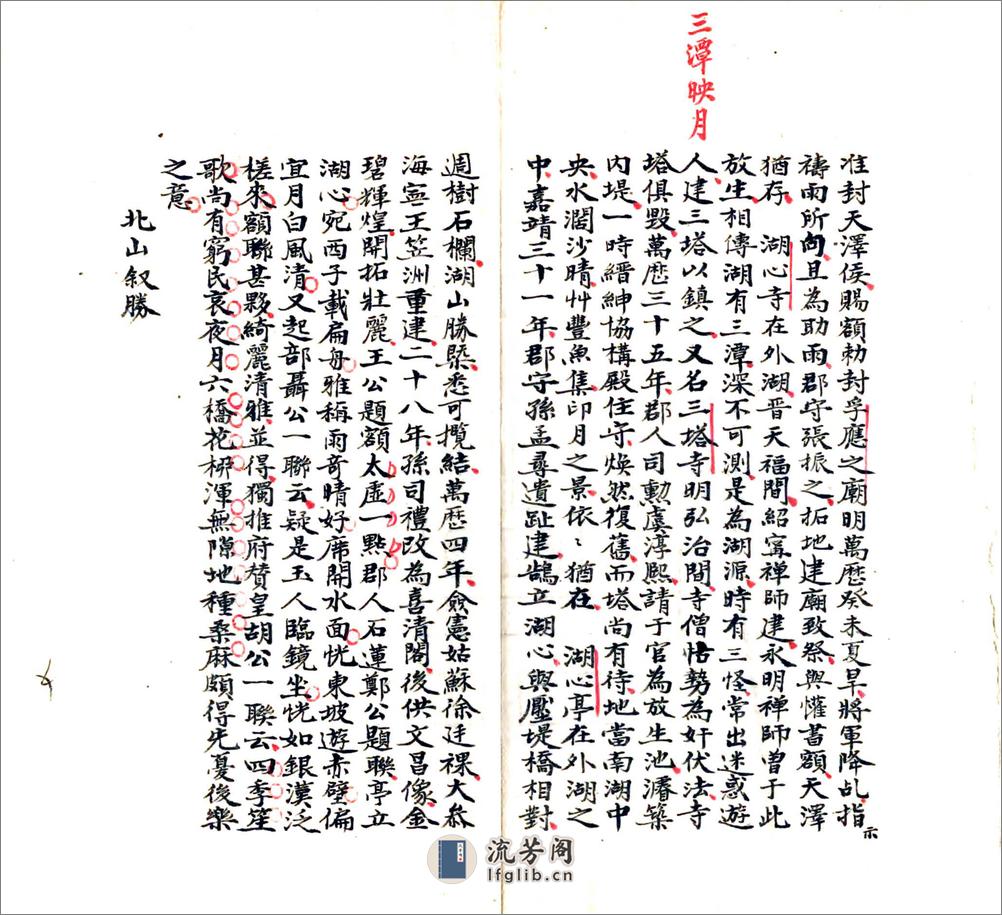 三潭映月
准封天澤侯賜額勑封孚應之廟明萬歷癸未夏旱將軍降乩指示
禱雨所向且為助雨郡守張振之拓地建廟致祭與懽書額天澤
猶存 湖心寺在外湖晋天福間紹寗禪師建永明禪師曾于此
放生相傳湖有三潭深不可測是為湖源時有三怪常出迷惑遊
人建三塔以鎮之又名三塔寺明弘治間寺僧怙勢為奸伏法寺
塔俱毀萬歷三十五年郡人司勲虞淳熙請于官為放生池濬築
内堤一時縉紳協構殿住守煥然復舊而塔尚有待地當南湖中
央水濶沙晴艸豐魚集印月之景依〻猶在 湖心亭在外湖之
中嘉靖三十一年郡守孫孟尋遺趾建鵠立湖心與壓堤橋相對
週樹石欄湖山勝槩悉可攬結萬歷四年僉憲姑蘇徐廷祼大叅
海寍王笠洲重建二十八年孫司禮改為喜清閣後供文昌像金
碧輝煌開拓壯麗王公題額太虛一點郡人石蓮鄭公題聯亭立
湖心宛西子載扁舟雅稱雨奇晴好席開水面恍東坡遊赤壁偏
宜月白風清又起部聶公一聯云疑是玉人臨鏡坐恍如銀漢泛
槎來額聯甚夥綺麗清雅並得獨推府賛皇胡公一聯云四季笙
歌尚有窮民哀夜月六橋花桺渾無隙地種桑麻頗得先憂後樂
之意
北山叙勝
流芳阁
lfglib.cn